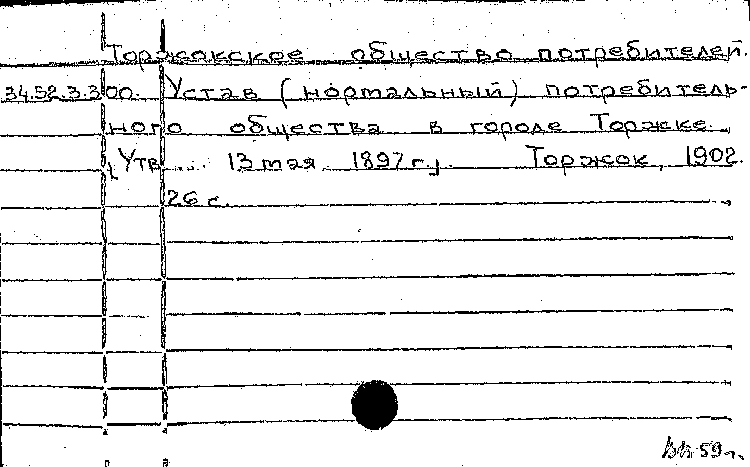 Торжокское общество потребителей.
34.52.3.300. Устав (нормальный) потребитель-
ного общества в городе Торжке.
[Утв. ... 13 мая 1897 г.]. Торжок, 1902.
26 с.
59 г.